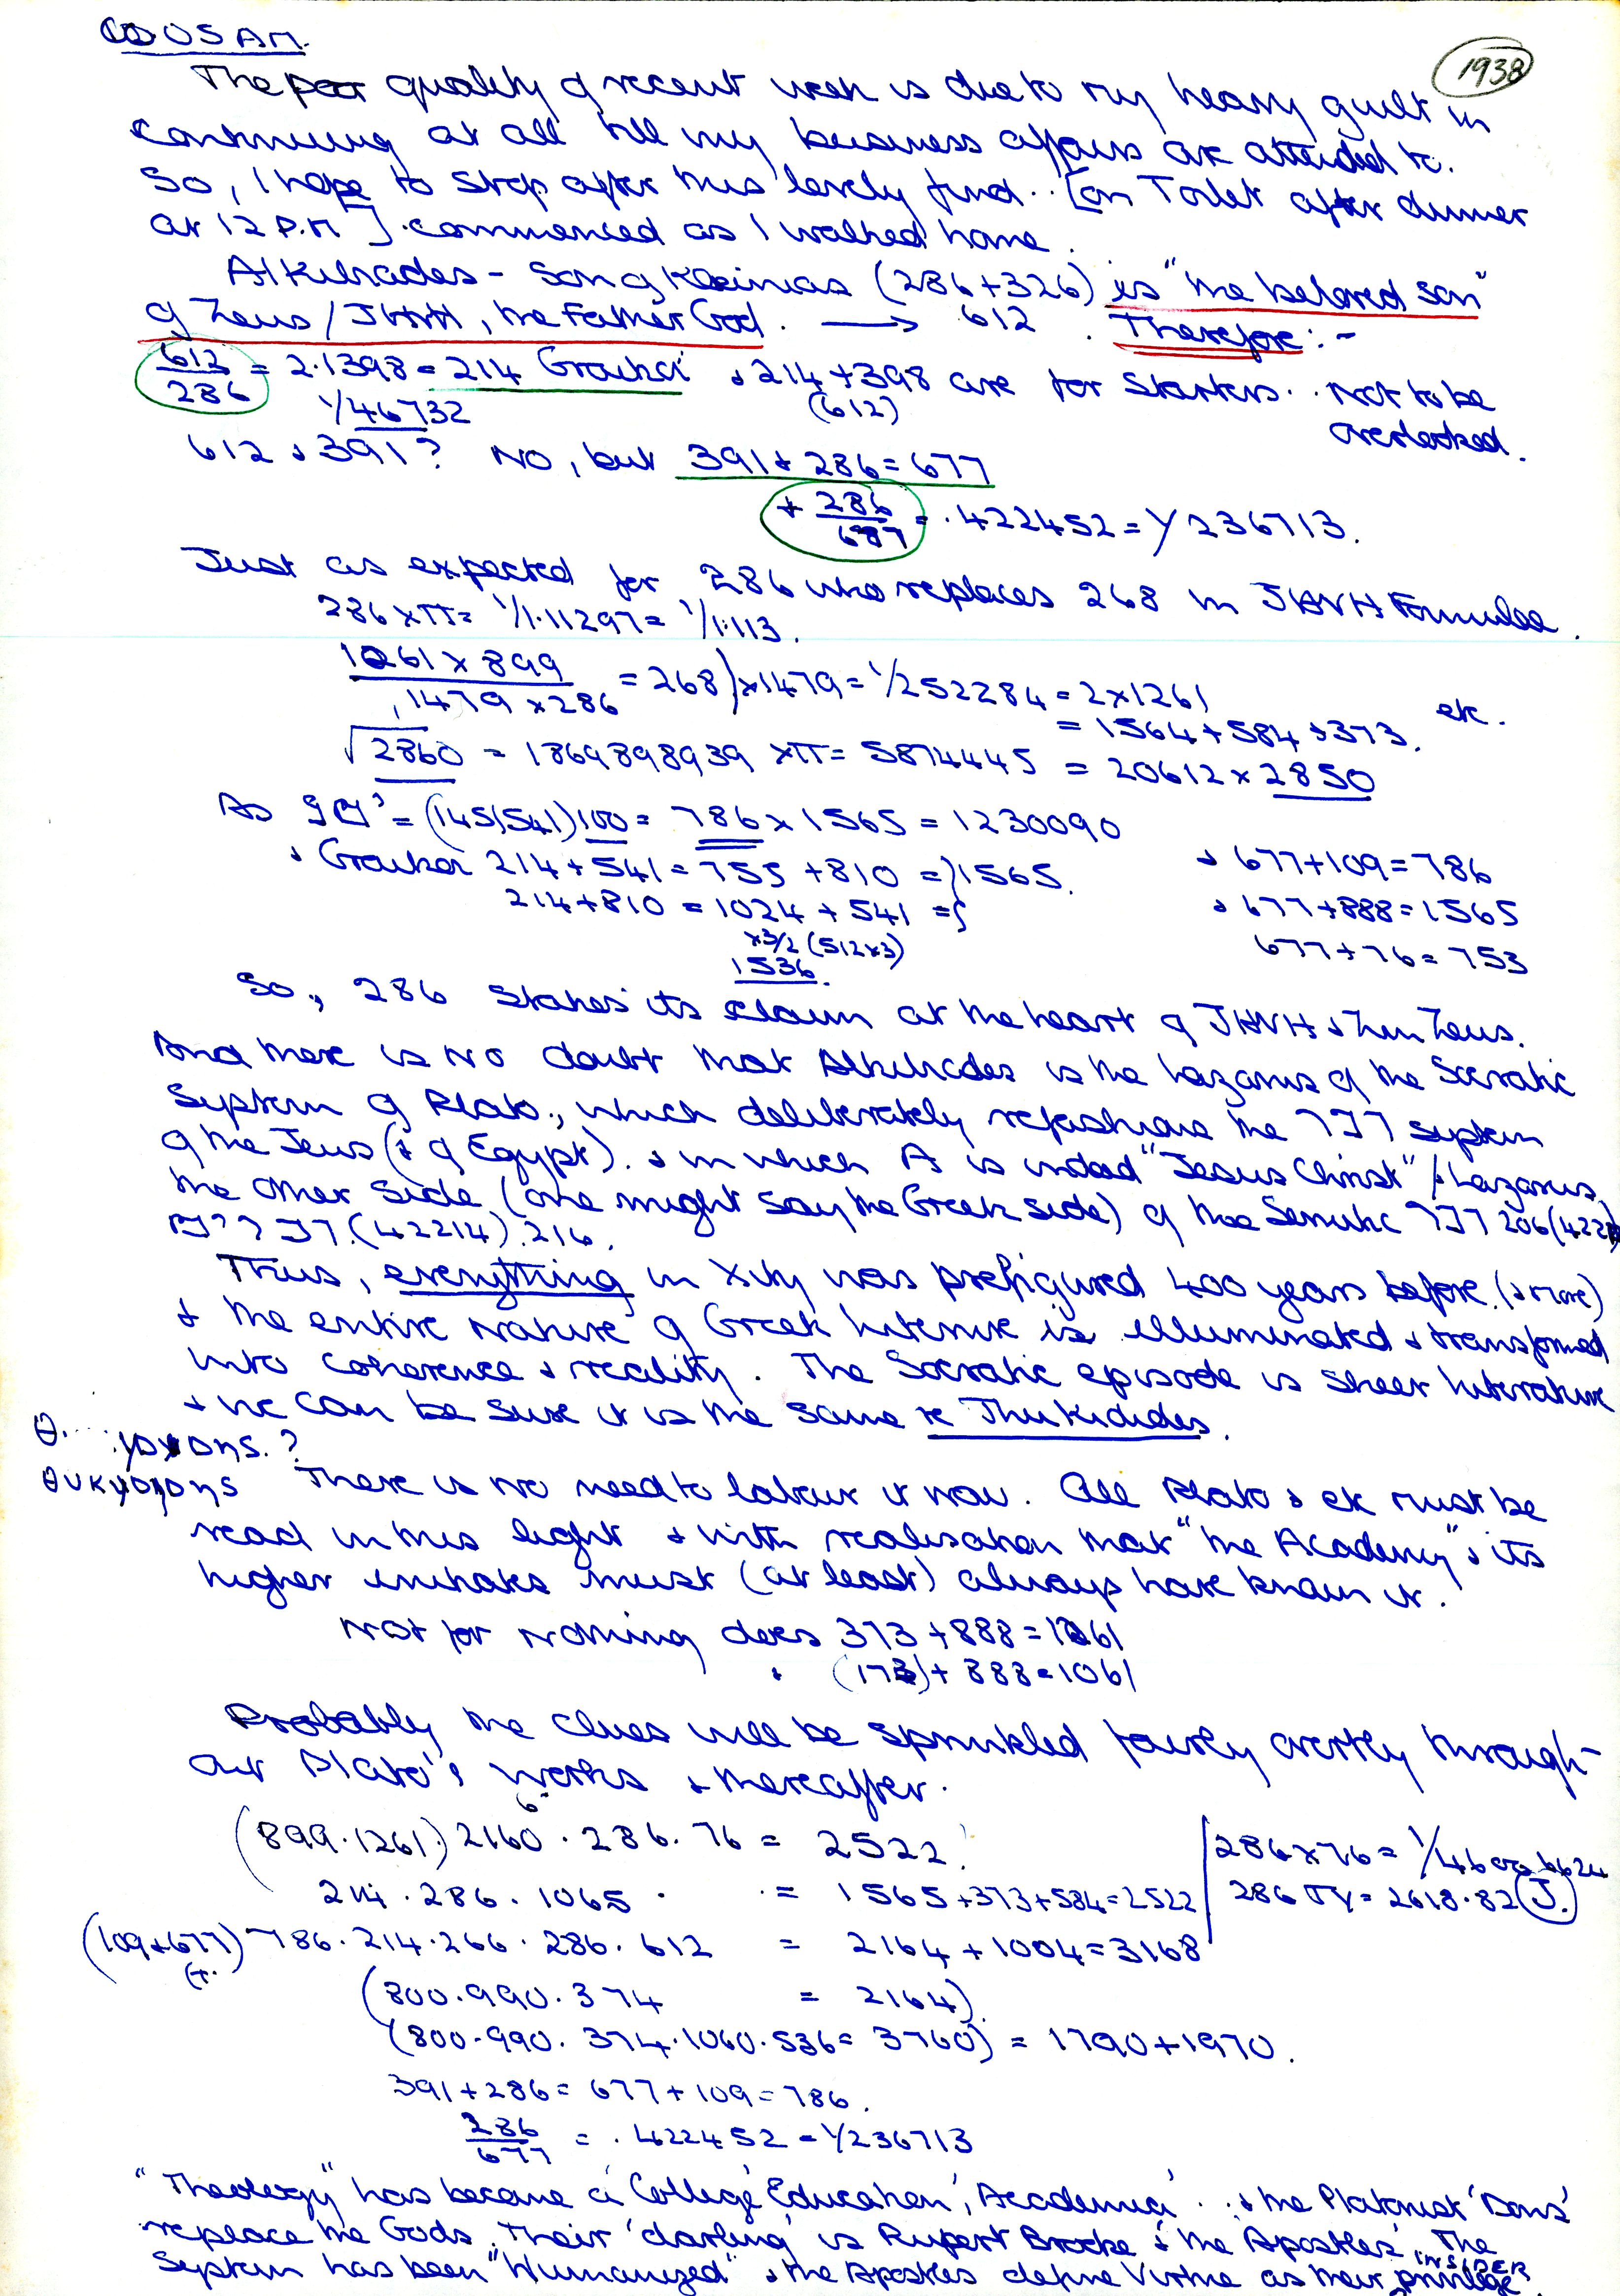 1938
The poor quality of recent work is due to my heavy guilt in
continuing at all till my business affairs are attended to.
So, I hope to stop after this lovely find.. [on Toilet after dinner
at 12 P.M]. commenced as I walked home.
Alkibiades - Son of Kleinias (286+326) is "the beloved son"
of Zeus / JHVH, the Father God. → 612. Therefore:-
612/286 = 2.1398 = 214 Graikoi & 214+398 are for starters.. Not to be
1/46732 (612) overlooked.
612 & 391? NO, but 391 + 286 = 677
+ 286/687 = .422452 = 1/236713.
Just as expected for 286 who replaces 268 in JHVH Formulae.
286 x π = 1/1.11297 = 1/1.113.
1261 x 899 / 1479 x 286 = 268) x 1479 = 1/252284 = 2 x 1261 etc.
= 1564 + 584 + 373.
√2860 = 1869898939 x π = 5874445 = 20612 x 2850
(1451541)100 = 786 x 1565 = 1230090
& Graikoi 214 + 541 = 755 + 810 = } 1565. & 677+109 = 786
214+810 = 1024 + 541 = } & 677+888 = 1565
x 3/2 (512x3) 677+76 = 753
1536.
So, 286 stakes its claim at the heart of JHVH & Zeus.
And there is NO doubt that Alkibiades is the Lazarus of the Socratic
System of Plato, which deliberately refashions the דבר system
of the Jews (& of Egypt). & in which A is indeed "Jesus Christ" / & Lazarus,
the other side (one might say the Greek side) of the Semitic דבר 206
(42214).216.
Thus, everything in Xity was prefigured 400 years before. (& more)
& the entire nature of Greek literature is illuminated & transformed
into coherence & reality. The Socratic episode is sheer literature
& we can be sure it is the same re Thukidides.
There is no need to labour it now. All Plato & etc must be
read in this light & with realisation that "the Academy" & its
higher initiates must (at least) always have known it.
Not for nothing does 373 + 888 = 1261
& (173) + 888 = 1061
Probably the clues will be sprinkled fairly overtly through-
out Plato's works & thereafter.
(899.1261.) 2160. 286. 76 = 2522. | 286 x 76 =
214. 286. 1065. = 1565+373+584=2522 | 286 = 2618.82 (J.)
(109+677) 786. 214. 266. 286. 612 = 2164 + 1004 = 3168
(800. 990. 374 = 2164)
(800. 990. 374. 1060. 536 = 3760) = 1790 + 1970.
391+286 = 677 + 109 = 786.
286/677 = .422452 = 1/236713
"Theology" has become a 'College Education', 'Academia'.. & the Platonist 'Dons'
replace the Gods. Their 'darling' is Rupert Brooke & 'the Apostles'. The
System has been "Humanized" & the Apostles define Virtue as their INSIDER privilege.